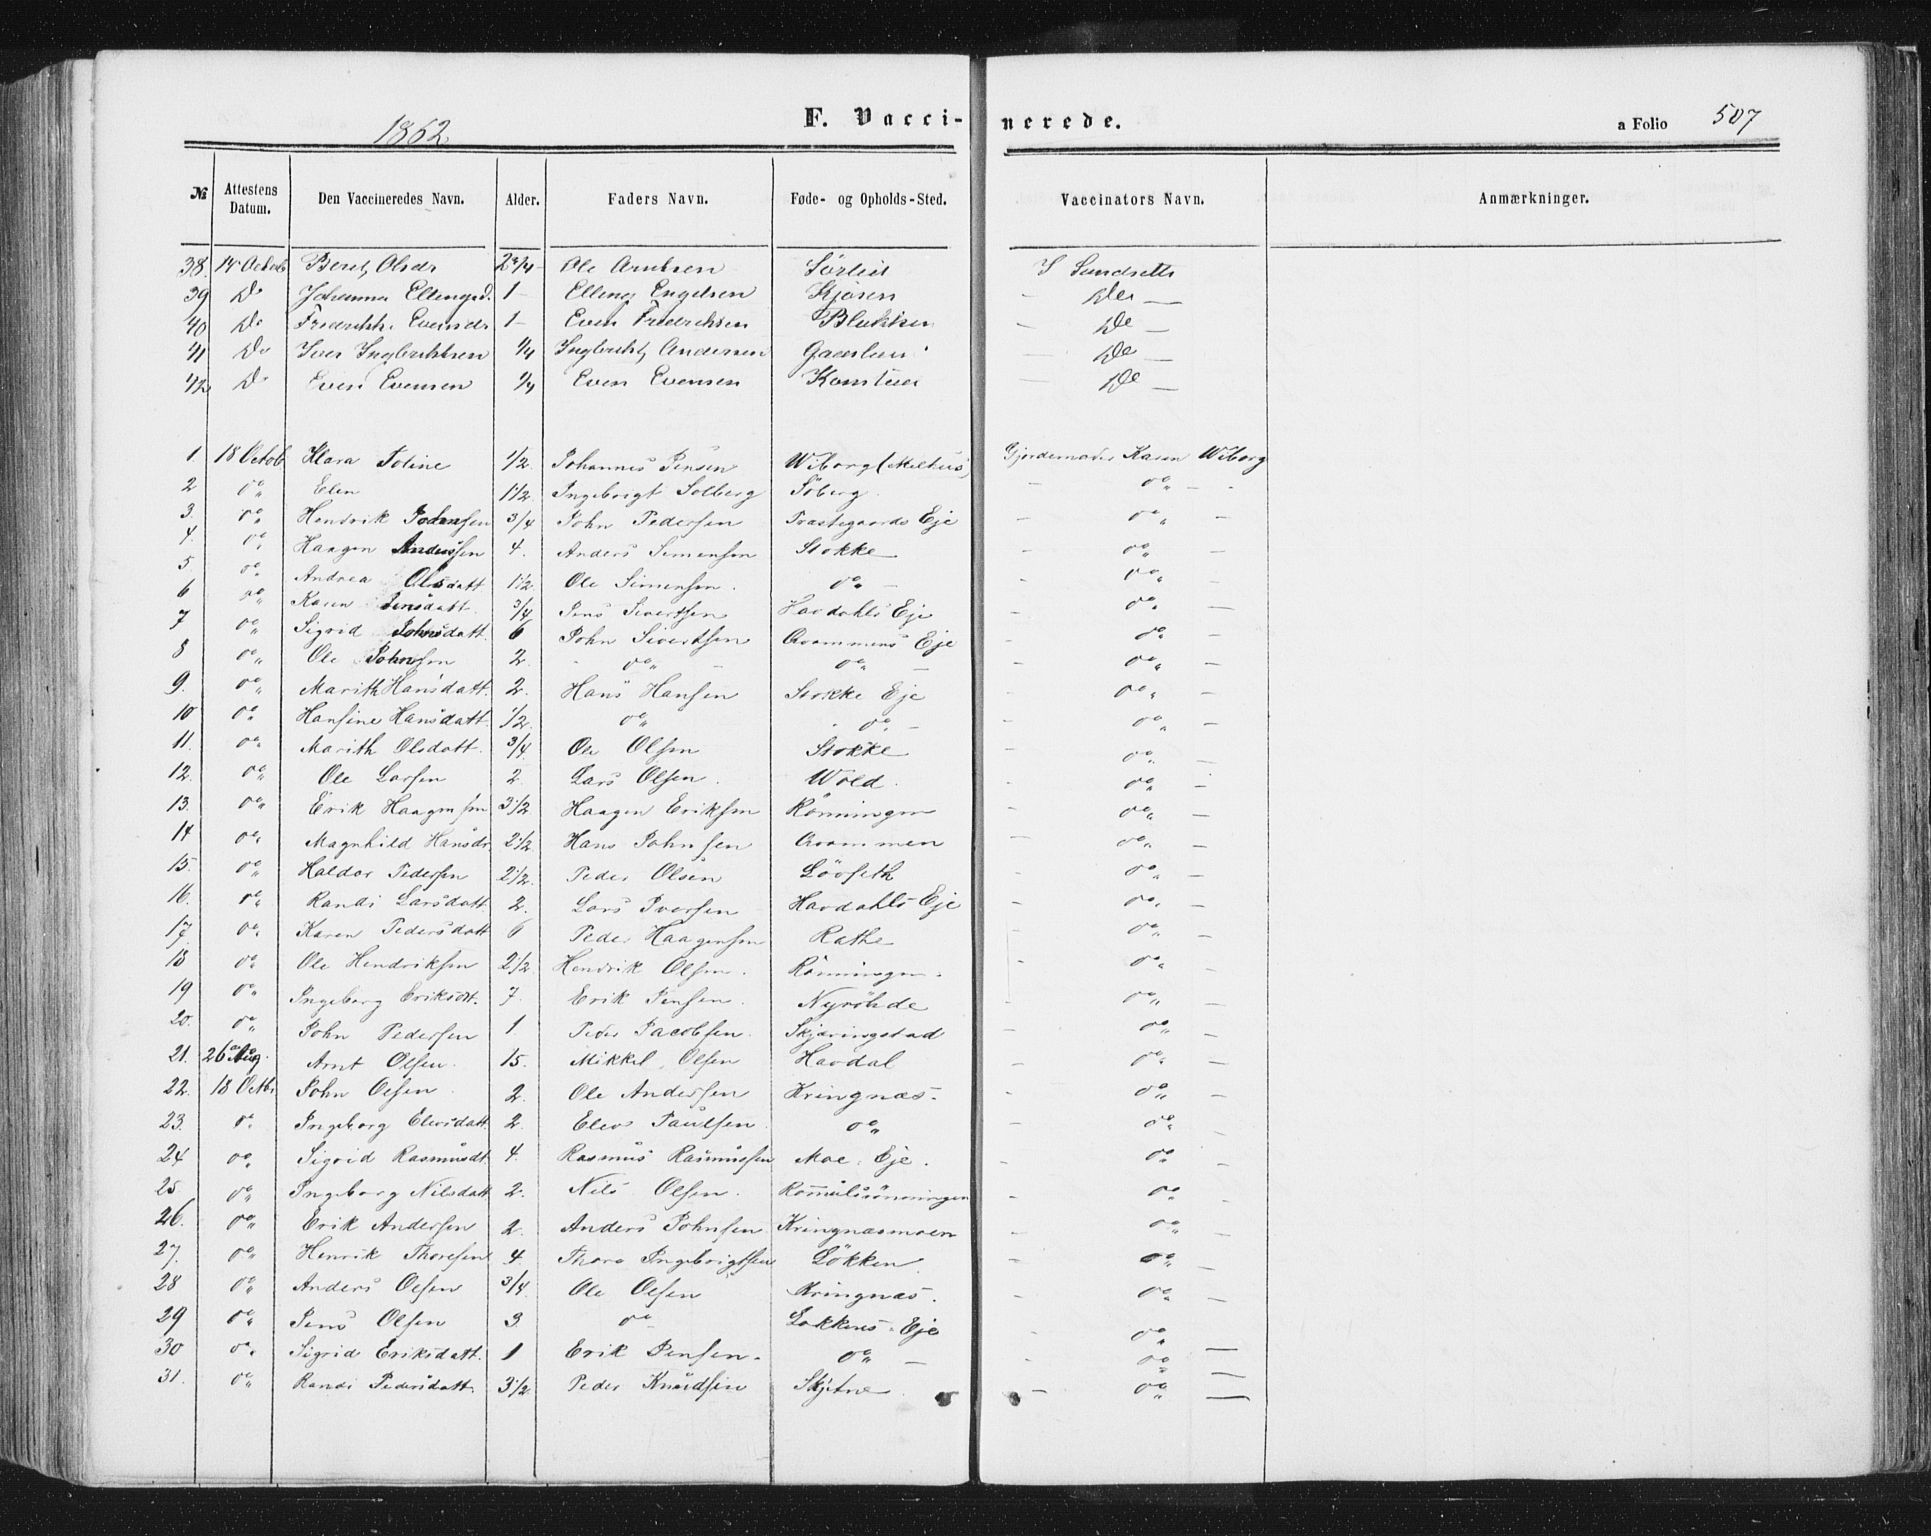 1862.
F. Vaccinerede.
a Folio 507
№ Attestens Datum. Den Vaccineredes Navn. Alder. Faders Navn. Føde- og Opholds-Sted. Vaccinators Navn. Anmærkninger.
38. 14 Octob Beret Olsdr 2 3/4 Ole Arntsen Sörlie S Sundseth
39 Do Johanna Ellingsd. 1 - Elling Engelsen Kjösen - Do -
40 Do Fredrikke Evensdr 1 - Even Fredriksen Blokken - Do -
41 Do Iver Ingbriktsen 1/4 Ingbrikt Andersen - Do -
42 Do Even Evensen 1/4 Even Evensen - Do -
1. 18 Octob Klara Toline 1/2. Johannes Jensen Wiborg (Melhus) Gjordemoder Karen Wiborg
2 do Elen 1 1/2. Ingebrigt Solberg Söberg. do -
3. do Hendrik Johnsen 3/4 John Pedersen Prastegaards Eje - do -
4. do Haagen Anderssen 4. Anders Simensen Stokke - do -
5 do Andrea Olsdatt 1 1/2 Ole Simensen. do - - do -
6 do Karen Jensdatt. 3/4 Jens Sivertsen Havdahls Eje - do -
7 do Sigrid Johnsdatt 6 John Sivertsen Qvammens Eje - do -
8 do Ole Johnsen 2. - do - do - - do -
9. do Marith Hansdatt. 2. Hans Hansen Stokke Eje - do -
10 do Hansine Hansdatt. 1/2. do - do - - do -
11. do Marith Olsdatt. 3/4. Ole Olsen Stokke - do -
12. do Ole Larsen 2. Lars Olsen. Wold. - do -
13. do Erik Haagensen 3 1/2. Haagen Eriksen Rönningen - do -
14 do Magnhild Hansdr. 2 1/2. Hans Johnsen Qvammen - do -
15. do Haldor Pedersen 2 1/2. Peder Olsen Lövseth - do -
16. do Randi Larsdatt 2. Lars Ivarsen Havdahls Eje - do -
17. do Karen Pedersdatt 6 Peder Haagensen Rathe - do -
18 do Ole Hendriksen 2 1/2. Hendrik Olsen. Rönningen. - do -
19 do Ingeborg Eriksdt. 7. Erik Jensen. Nyröhde - do -
20. do John Pedersen 1. Peder Jacobsen. Skjæringstad - do -
21. 26 Aug. Arnt Olsen. 15. Mikkel Olsen Havdal - do -
22. 18 Octbr John Olsen. 2. Ole Andersen Kringnæs. - do -
23. do Ingeborg Elevsdatt 2. Elev Paulsen. do - do -
24 do Sigrid Rasmusdt 4. Rasmus Rasmussen Moe. Eje. - do -
25 do Ingeborg Nilsdatt 2. Nils Olsen. - do -
26. do Erik Andersen 2. Anders Johnsen Kringnæsmoen - do -
27. do Henrik Thoresen 4 Thore Ingebrigtsen Lökken - do -
28 do Anders Olsen 3/4. Ole Olsen Kringnæs. - do -
29 do Jens Olsen 3 do Løkkens Eje - do -
30 do Sigrid Eriksdatt. 1 Erik Jensen. do - - do -
31. do Randi Pedersdatt. 3 1/2. Peder Knudsen Skjetne. - do -